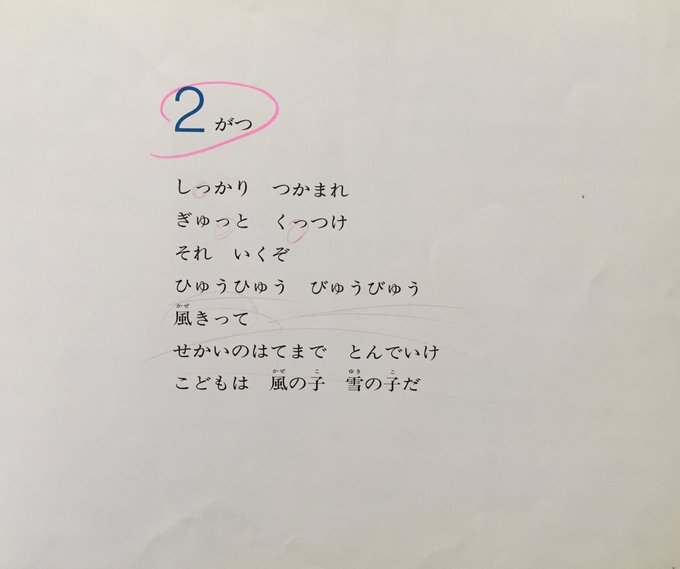 2がつ
しっかり　つかまれ
ぎゅっと　くっつけ
それ　いくぞ
ひゅうひゅう　びゅうびゅう
風きって
せかいのはてまで　とんでいけ
こどもは　風の子　雪の子だ